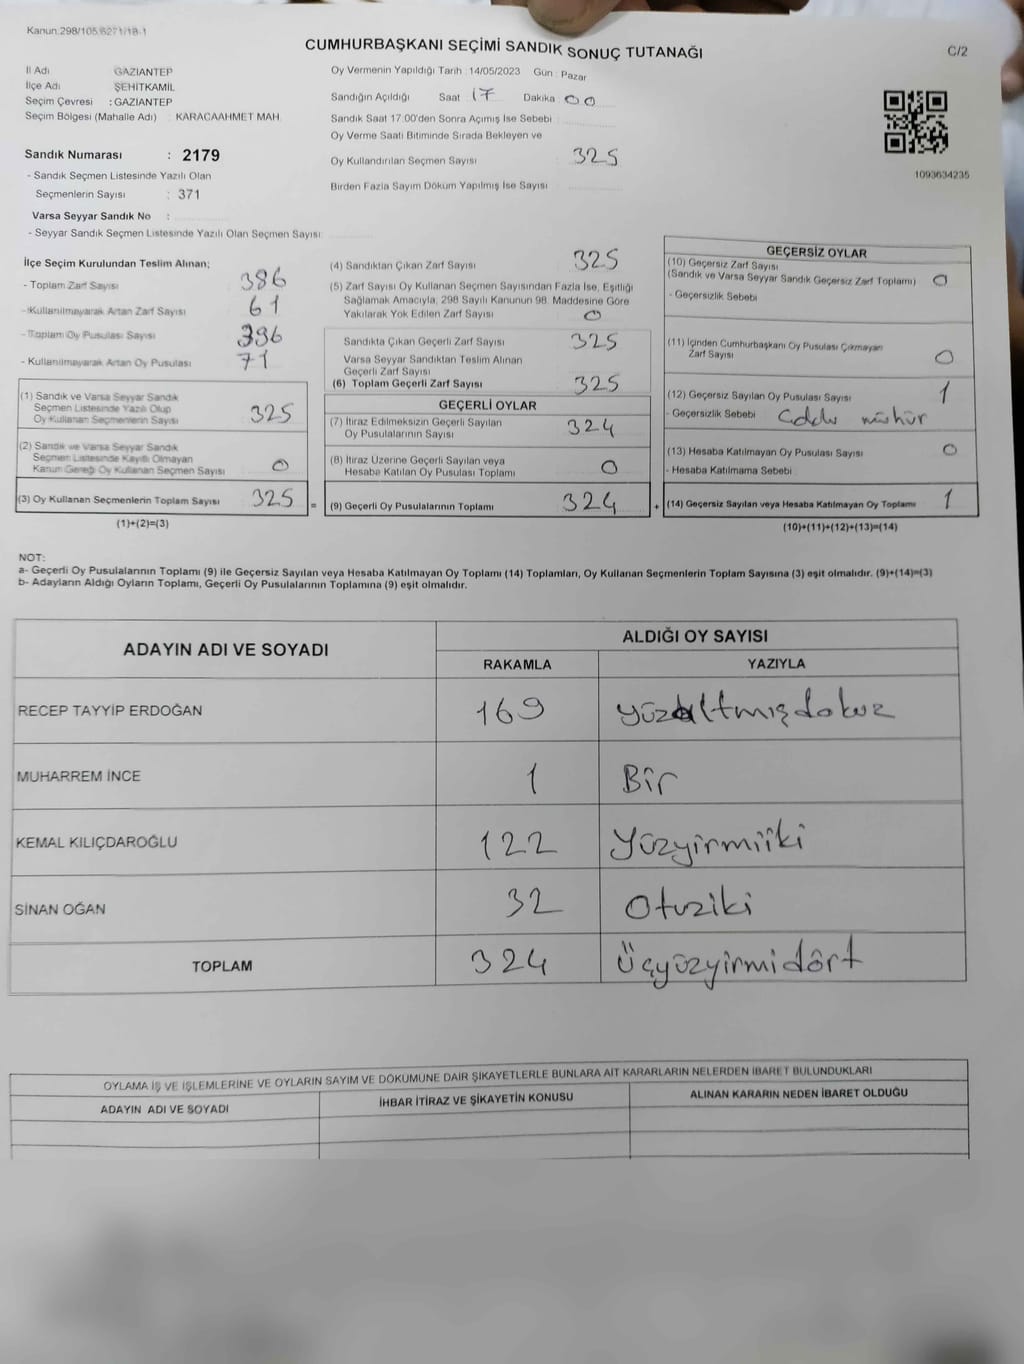 Kanun:298/105,6271/18-1
CUMHURBAŞKANI SEÇİMİ SANDIK SONUÇ TUTANAĞI
C/2
İl Adı GAZİANTEP
İlçe Adı ŞEHİTKAMİL
Seçim Çevresi : GAZİANTEP
Seçim Bölgesi (Mahalle Adı) : KARACAAHMET MAH.
Sandık Numarası : 2179
- Sandık Seçmen Listesinde Yazılı Olan
Seçmenlerin Sayısı : 371
Varsa Seyyar Sandık No :
- Seyyar Sandık Seçmen Listesinde Yazılı Olan Seçmen Sayısı:
Oy Vermenin Yapıldığı Tarih : 14/05/2023 Gün : Pazar
Sandığın Açıldığı Saat 17 Dakika 00
Sandık Saat 17:00'den Sonra Açımış İse Sebebi :
Oy Verme Saati Bitiminde Sırada Bekleyen ve
Oy Kullandırılan Seçmen Sayısı : 325
Birden Fazla Sayım Döküm Yapılmış İse Sayısı
1093634235
İlçe Seçim Kurulundan Teslim Alınan;
- Toplam Zarf Sayısı : 386
- Kullanılmayarak Artan Zarf Sayısı : 61
- Toplam Oy Pusulası Sayısı : 396
- Kullanılmayarak Artan Oy Pusulası : 71
(1) Sandık ve Varsa Seyyar Sandık
Seçmen Listesinde Yazılı Olup
Oy Kullanan Seçmenlerin Sayısı : 325
(2) Sandık ve Varsa Seyyar Sandık
Seçmen Listesinde Kayıtlı Olmayan
Kanun Gereği Oy Kullanan Seçmen Sayısı : 0
(3) Oy Kullanan Seçmenlerin Toplam Sayısı : 325
(1)+(2)=(3)
(4) Sandıktan Çıkan Zarf Sayısı : 325
(5) Zarf Sayısı Oy Kullanan Seçmen Sayısından Fazla İse, Eşitliği
Sağlamak Amacıyla, 298 Sayılı Kanunun 98. Maddesine Göre
Yakılarak Yok Edilen Zarf Sayısı : 0
Sandıkta Çıkan Geçerli Zarf Sayısı : 325
Varsa Seyyar Sandıktan Teslim Alınan
Geçerli Zarf Sayısı :
(6) Toplam Geçerli Zarf Sayısı : 325
GEÇERLİ OYLAR
(7) İtiraz Edilmeksizin Geçerli Sayılan
Oy Pusulalarının Sayısı : 324
(8) İtiraz Üzerine Geçerli Sayılan veya
Hesaba Katılan Oy Pusulası Toplamı : 0
= (9) Geçerli Oy Pusulalarının Toplamı : 324
GEÇERSİZ OYLAR
(10) Geçersiz Zarf Sayısı
(Sandık ve Varsa Seyyar Sandık Geçersiz Zarf Toplamı) : 0
- Geçersizlik Sebebi
(11) İçinden Cumhurbaşkanı Oy Pusulası Çıkmayan
Zarf Sayısı : 0
(12) Geçersiz Sayılan Oy Pusulası Sayısı : 1
- Geçersizlik Sebebi : mühür
(13) Hesaba Katılmayan Oy Pusulası Sayısı : 0
- Hesaba Katılmama Sebebi
+ (14) Geçersiz Sayılan veya Hesaba Katılmayan Oy Toplamı : 1
(10)+(11)+(12)+(13)=(14)
NOT:
a- Geçerli Oy Pusulalarının Toplamı (9) ile Geçersiz Sayılan veya Hesaba Katılmayan Oy Toplamı (14) Toplamları, Oy Kullanan Seçmenlerin Toplam Sayısına (3) eşit olmalıdır. (9)+(14)=(3)
b- Adayların Aldığı Oyların Toplamı, Geçerli Oy Pusulalarının Toplamına (9) eşit olmalıdır.
ADAYIN ADI VE SOYADI ALDIĞI OY SAYISI
RAKAMLA YAZIYLA
RECEP TAYYİP ERDOĞAN 169 yüzaltmışdokuz
MUHARREM İNCE 1 Bir
KEMAL KILIÇDAROĞLU 122 Yüzyirmiiki
SİNAN OĞAN 32 Otuziki
TOPLAM 324 Üçyüzyirmidört
OYLAMA İŞ VE İŞLEMLERİNE VE OYLARIN SAYIM VE DÖKÜMÜNE DAİR ŞİKAYETLERLE BUNLARA AİT KARARLARIN NELERDEN İBARET BULUNDUKLARI
ADAYIN ADI VE SOYADI İHBAR İTİRAZ VE ŞİKAYETİN KONUSU ALINAN KARARIN NEDEN İBARET OLDUĞU